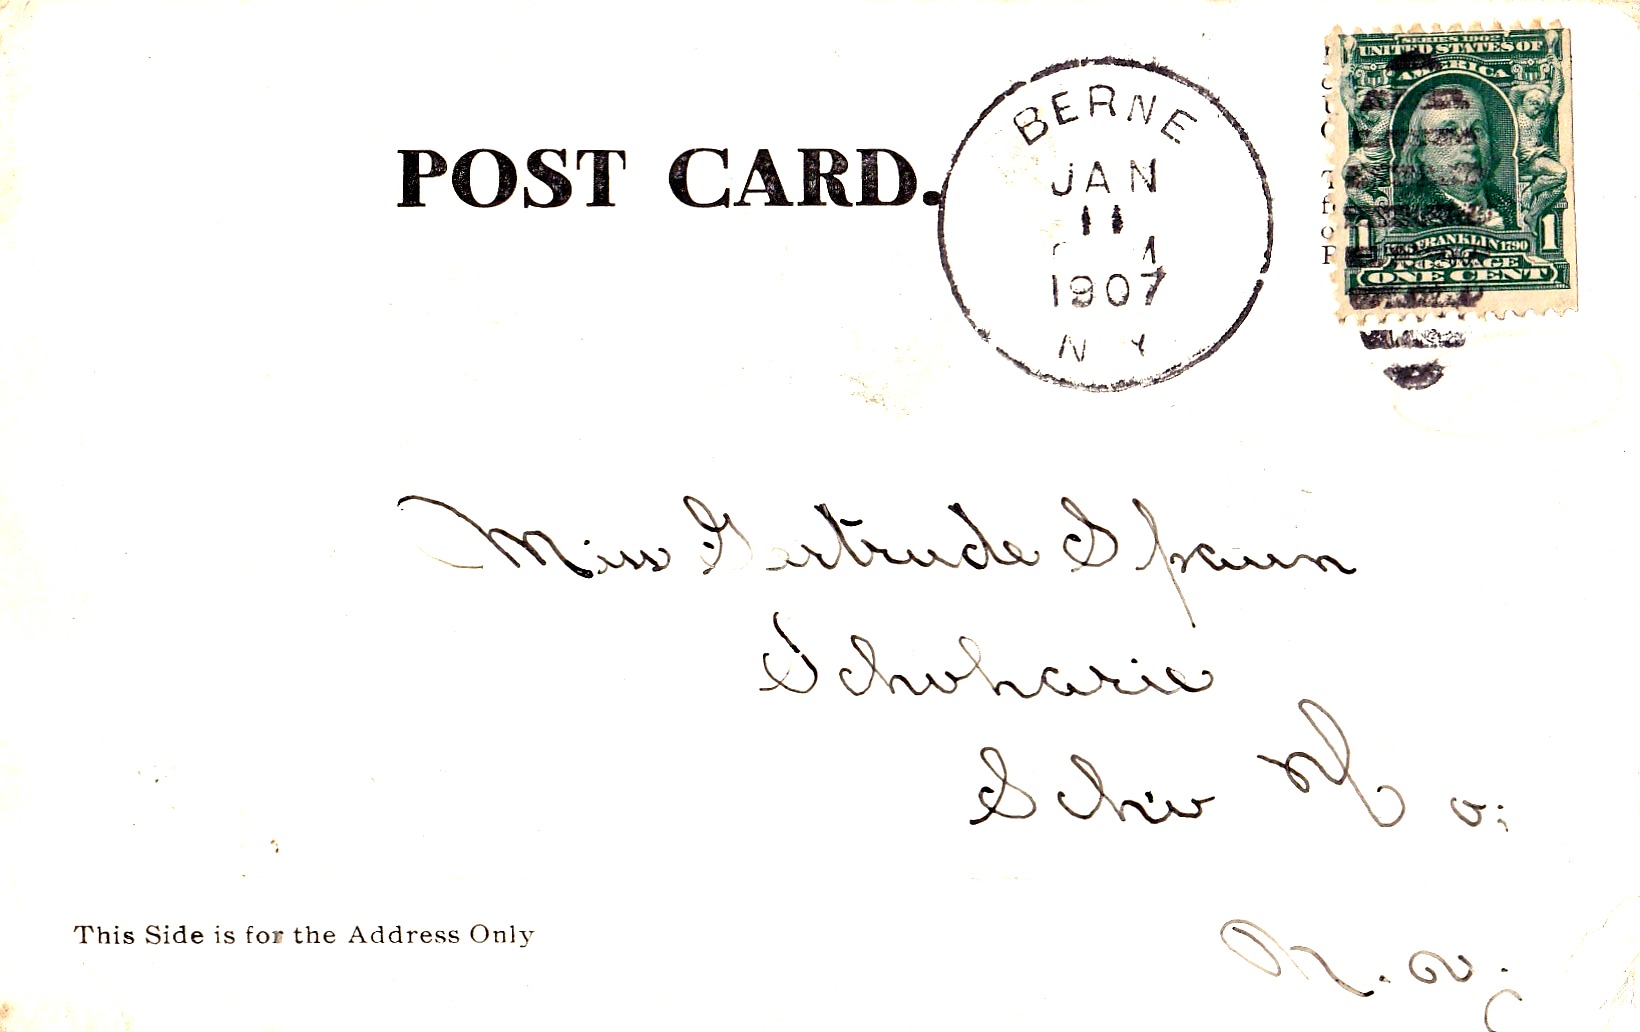 POST CARD.
BERNE
JAN
11
1907
N Y
SERIES 1902
UNITED STATES OF
AMERICA
1 FRANKLIN 1790 1
POSTAGE
ONE CENT
Miss Gertrude Spaun
Schoharie
Scho Co.
N. Y.
This Side is for the Address Only